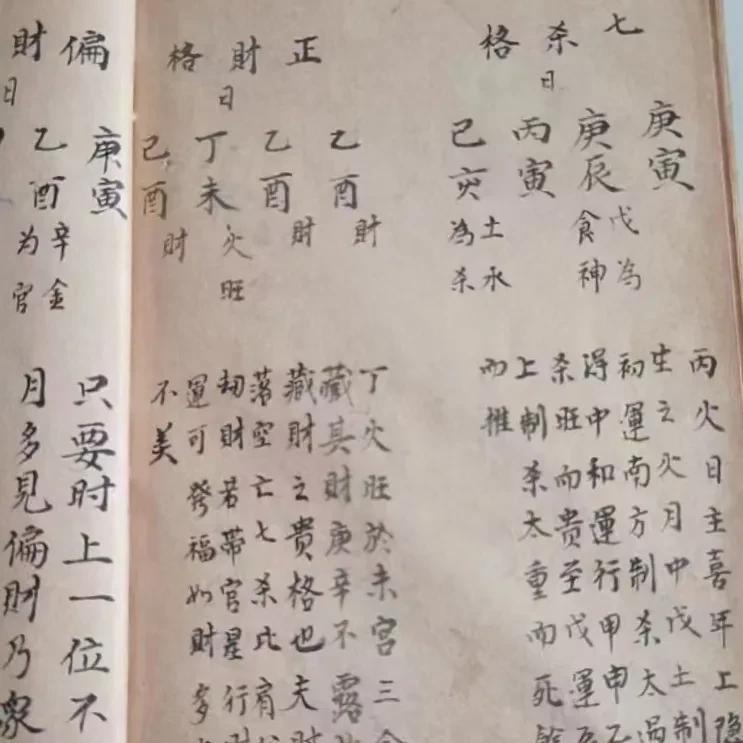 七杀格
日
庚寅
庚辰
丙寅
己亥
戊為
食神
土水
為杀
丙火日主喜年上隐
生之火月中戊土制
初運南方制杀太過
得中和運行甲申乙
杀旺而贵至戊運
上制杀太重而死餘
而推
正財格
日
乙酉
乙酉
丁未
己酉
財
財
火旺
財
丁火旺於未宫三合
藏其财庚辛不露
藏財之贵格也夫財
落空亡七杀比肩
劫財若带官星行財
運可發福如財多
不美
偏財
日
庚寅
乙酉
辛金
为官
只要时上一位不
月多見偏财乃衆